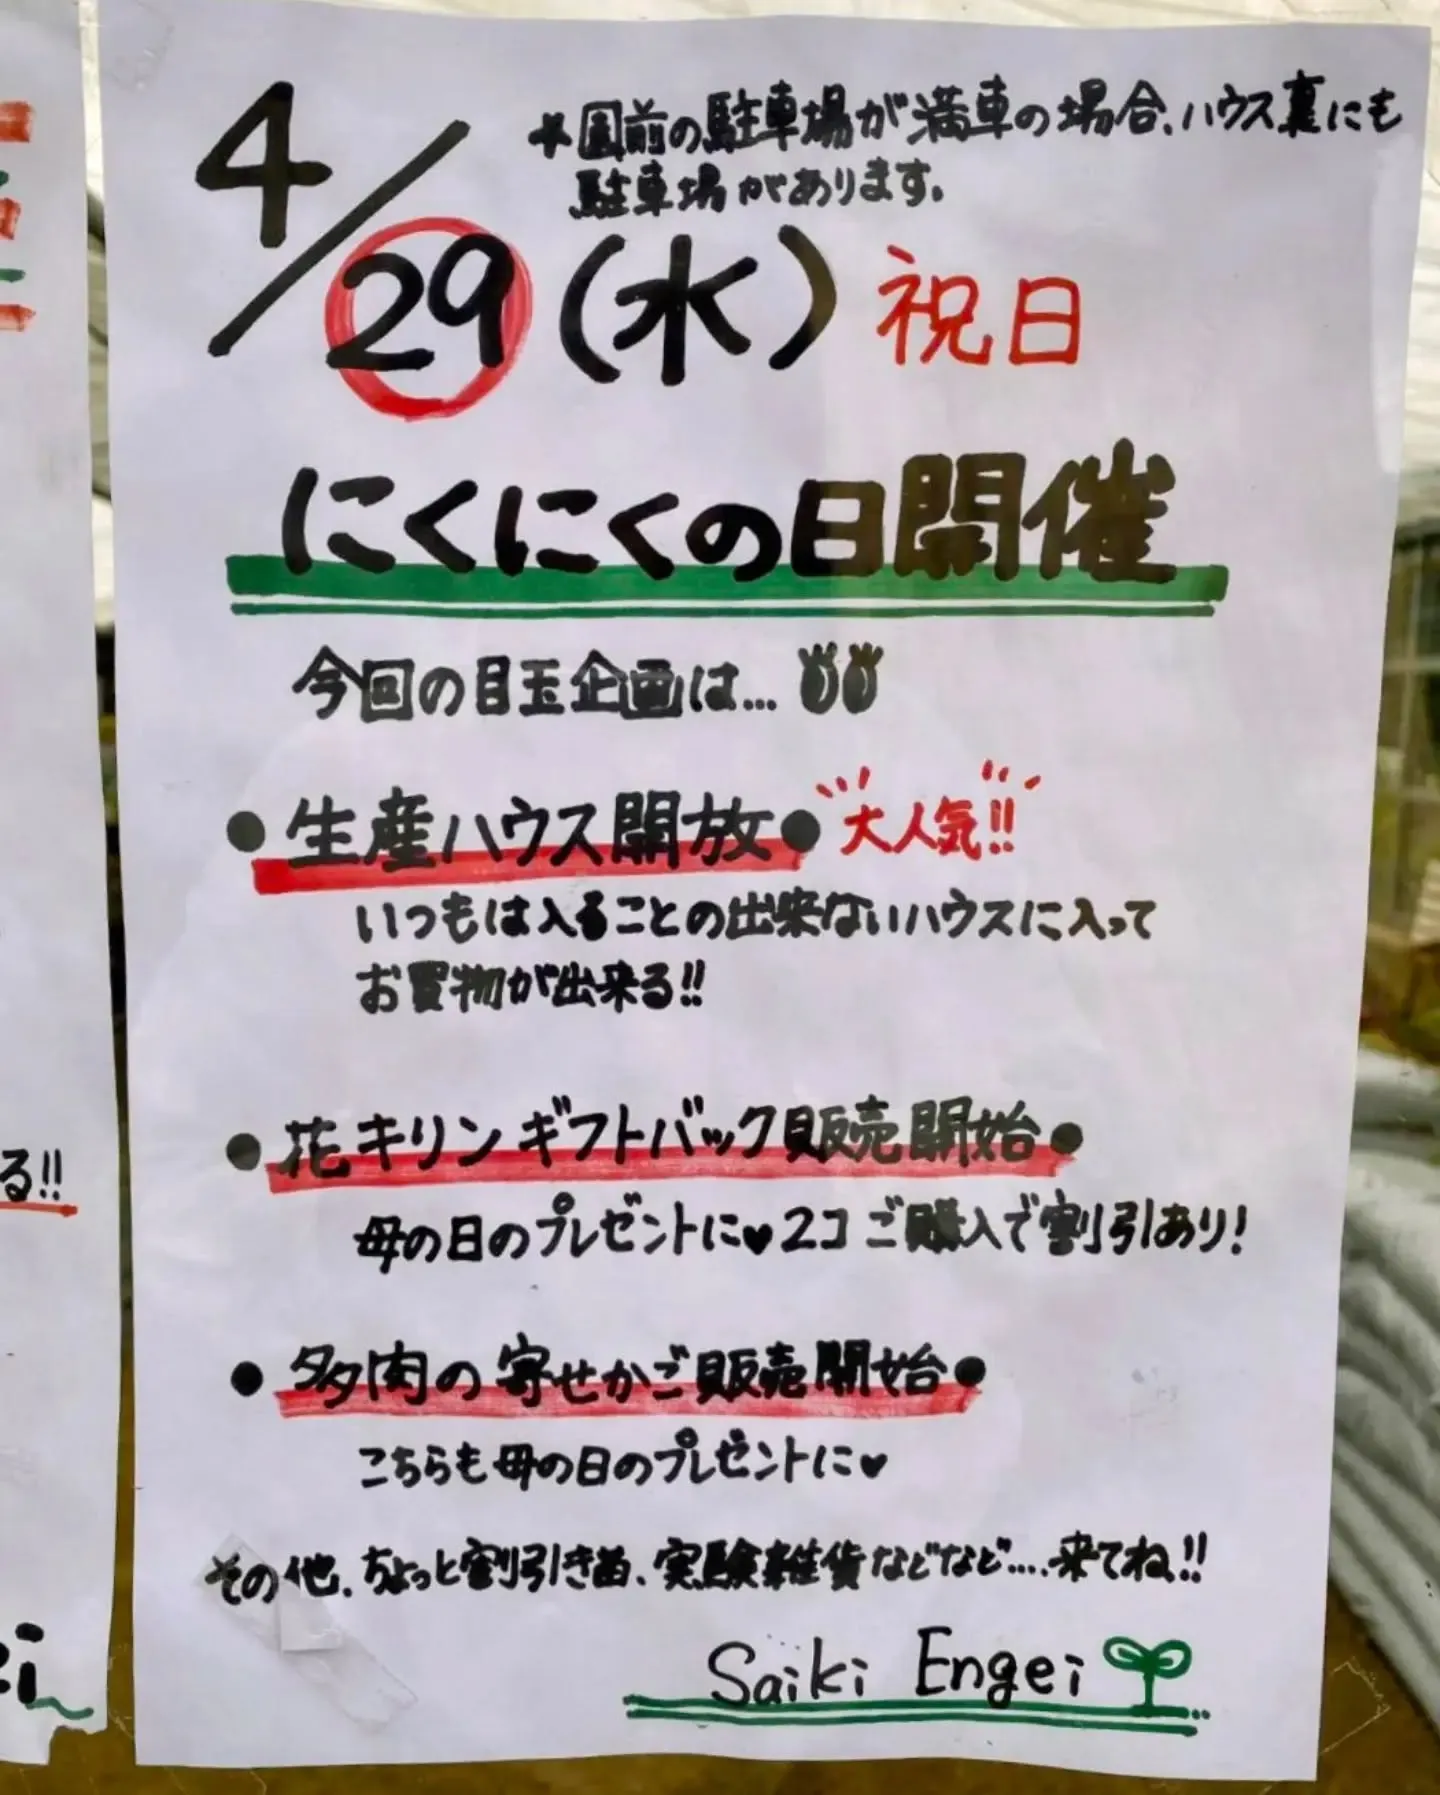 4/29(水)祝日
*園前の駐車場が満車の場合、ハウス裏にも
駐車場があります。
にくにくの日開催
今回の目玉企画は…
●生産ハウス開放●大人気!!
いつもは入ることの出来ないハウスに入って
お買物が出来る!!
●花キリンギフトバック販売開始●
母の日のプレゼントに♥2コご購入で割引あり!
●多肉の寄せかご販売開始●
こちらも母の日のプレゼントに♥
その他、ちょっと割引き苗、実験雑貨などなど….来てね!!
Saiki Engei
る!!